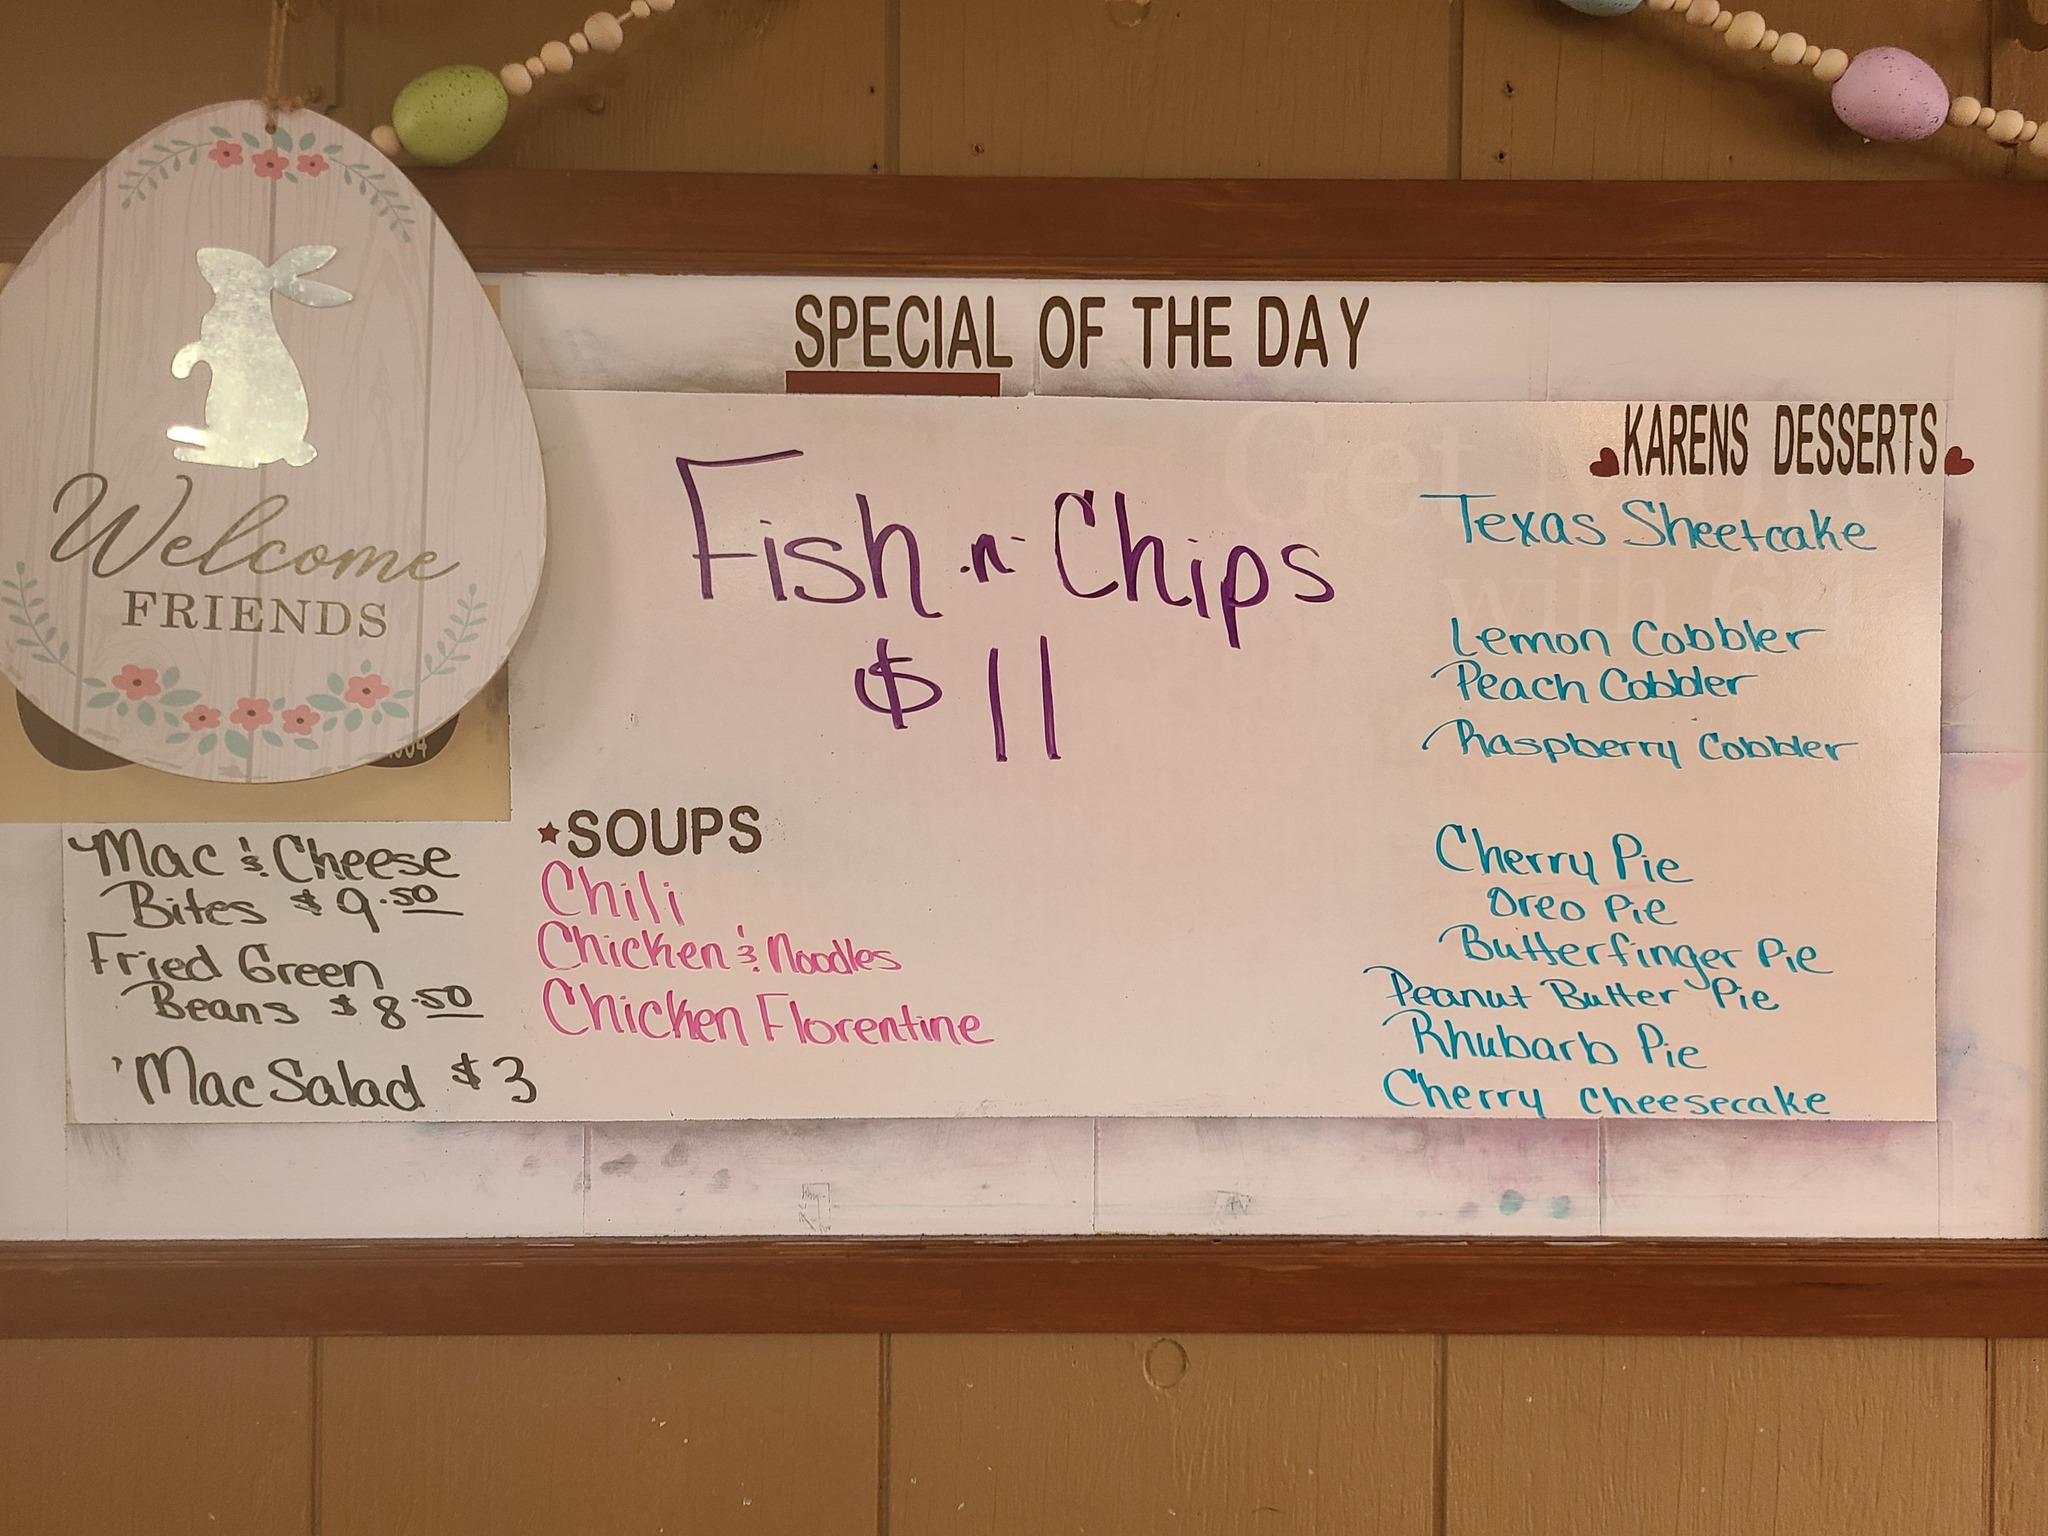 Welcome
FRIENDS
SPECIAL OF THE DAY
Fish -n- Chips
$11
Mac & Cheese
Bites $9.50
Fried Green
Beans $8.50
Mac Salad $3
SOUPS
Chili
Chicken & Noodles
Chicken Florentine
KARENS DESSERTS
Texas Sheetcake
Lemon Cobbler
Peach Cobbler
Raspberry Cobbler
Cherry Pie
Oreo Pie
Butterfinger Pie
Peanut Butter Pie
Rhubarb Pie
Cherry Cheesecake